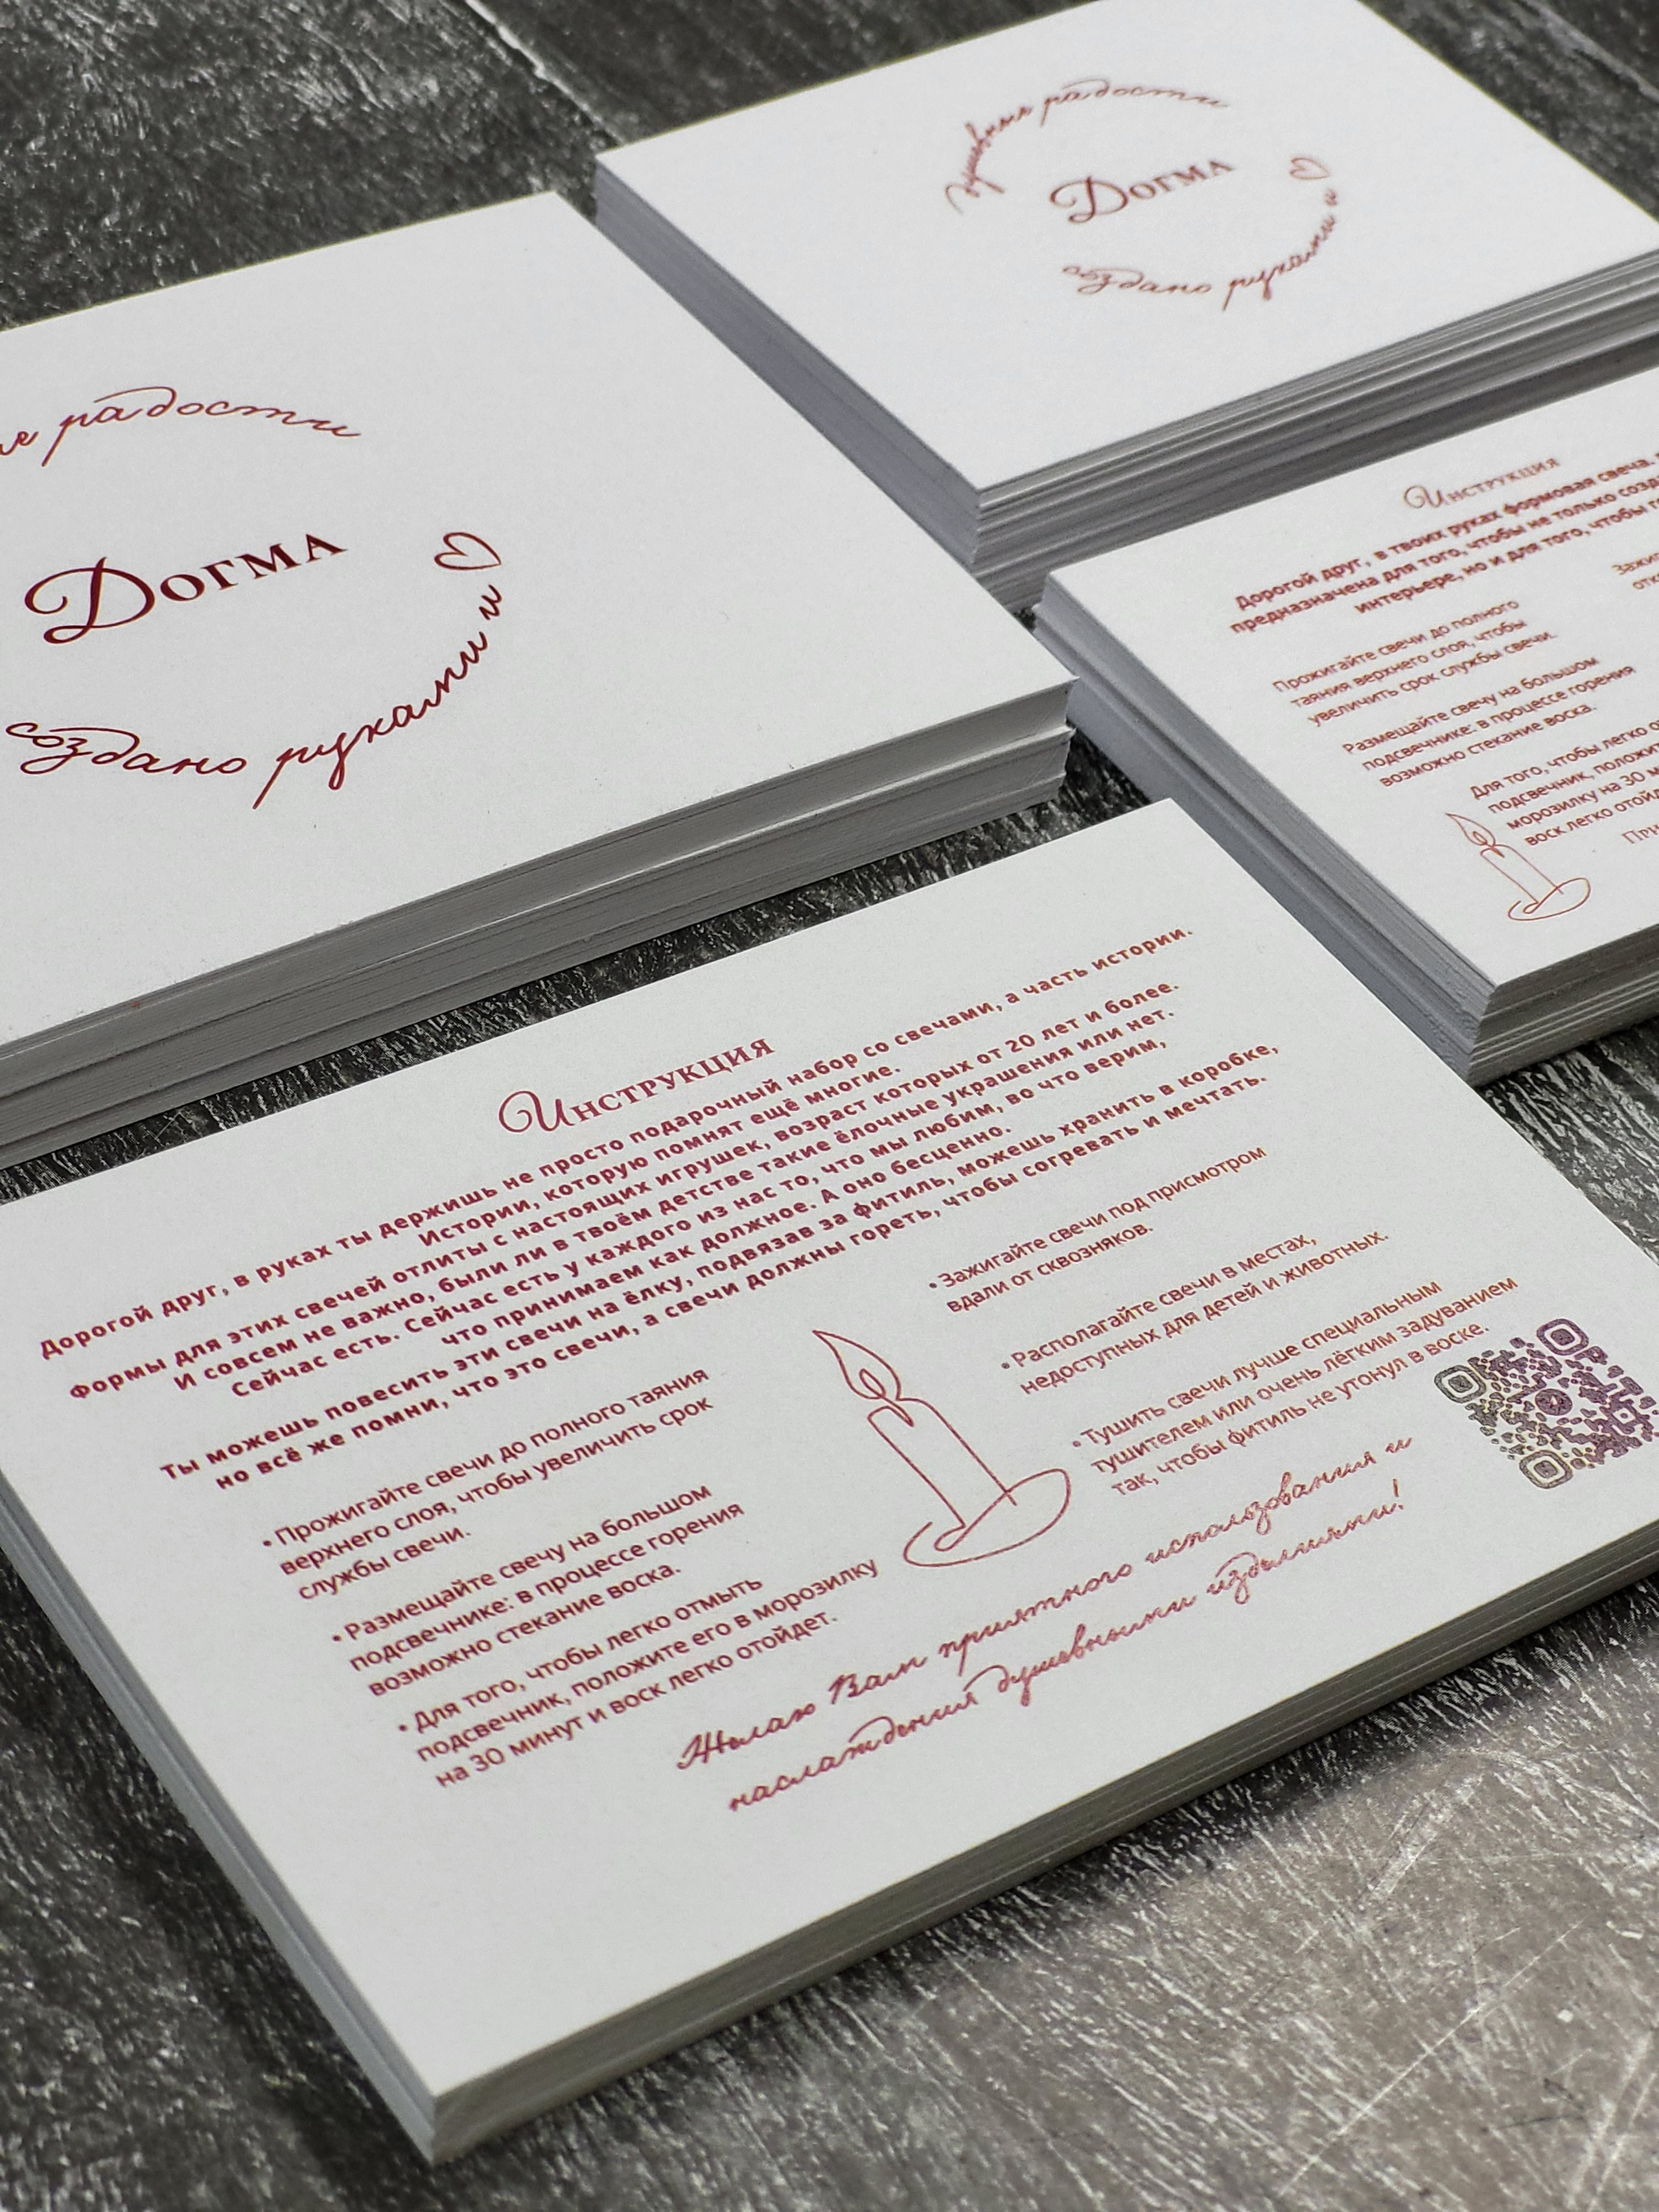 душевные радости
Догма
создано руками и
е радости
Догма
создано руками и
Инструкция
Дорогой друг, в твоих руках формовая свеча.
предназначена для того, чтобы не только
интерьере, но и для того, чтобы
Прожигайте свечи до полного
таяния верхнего слоя, чтобы
увеличить срок службы свечи.
Размещайте свечу на большом
подсвечнике: в процессе горения
возможно стекание воска.
Для того, чтобы легко
подсвечник,
морозилку на 30
воск легко
Инструкция
Дорогой друг, в руках ты держишь не просто подарочный набор со свечами, а часть истории.
Истории, которую помнят ещё многие.
Формы для этих свечей отлиты с настоящих игрушек, возраст которых от 20 лет и более.
И совсем не важно, были ли в твоём детстве такие ёлочные украшения или нет.
Сейчас есть. Сейчас есть у каждого из нас то, что мы любим, во что верим,
что принимаем как должное. А оно бесценно.
Ты можешь повесить эти свечи на ёлку, подвязав за фитиль, можешь хранить в коробке,
но всё же помни, что это свечи, а свечи должны гореть, чтобы согревать и мечтать.
• Прожигайте свечи до полного таяния
верхнего слоя, чтобы увеличить срок
службы свечи.
• Размещайте свечу на большом
подсвечнике: в процессе горения
возможно стекание воска.
• Для того, чтобы легко отмыть
подсвечник, положите его в морозилку
на 30 минут и воск легко отойдет.
• Зажигайте свечи под присмотром
вдали от сквозняков.
• Располагайте свечи в местах,
недоступных для детей и животных.
• Тушить свечи лучше специальным
тушителем или очень лёгким задуванием
так, чтобы фитиль не утонул в воске.
Желаю Вам приятного использования и
наслаждения душевными изделиями!